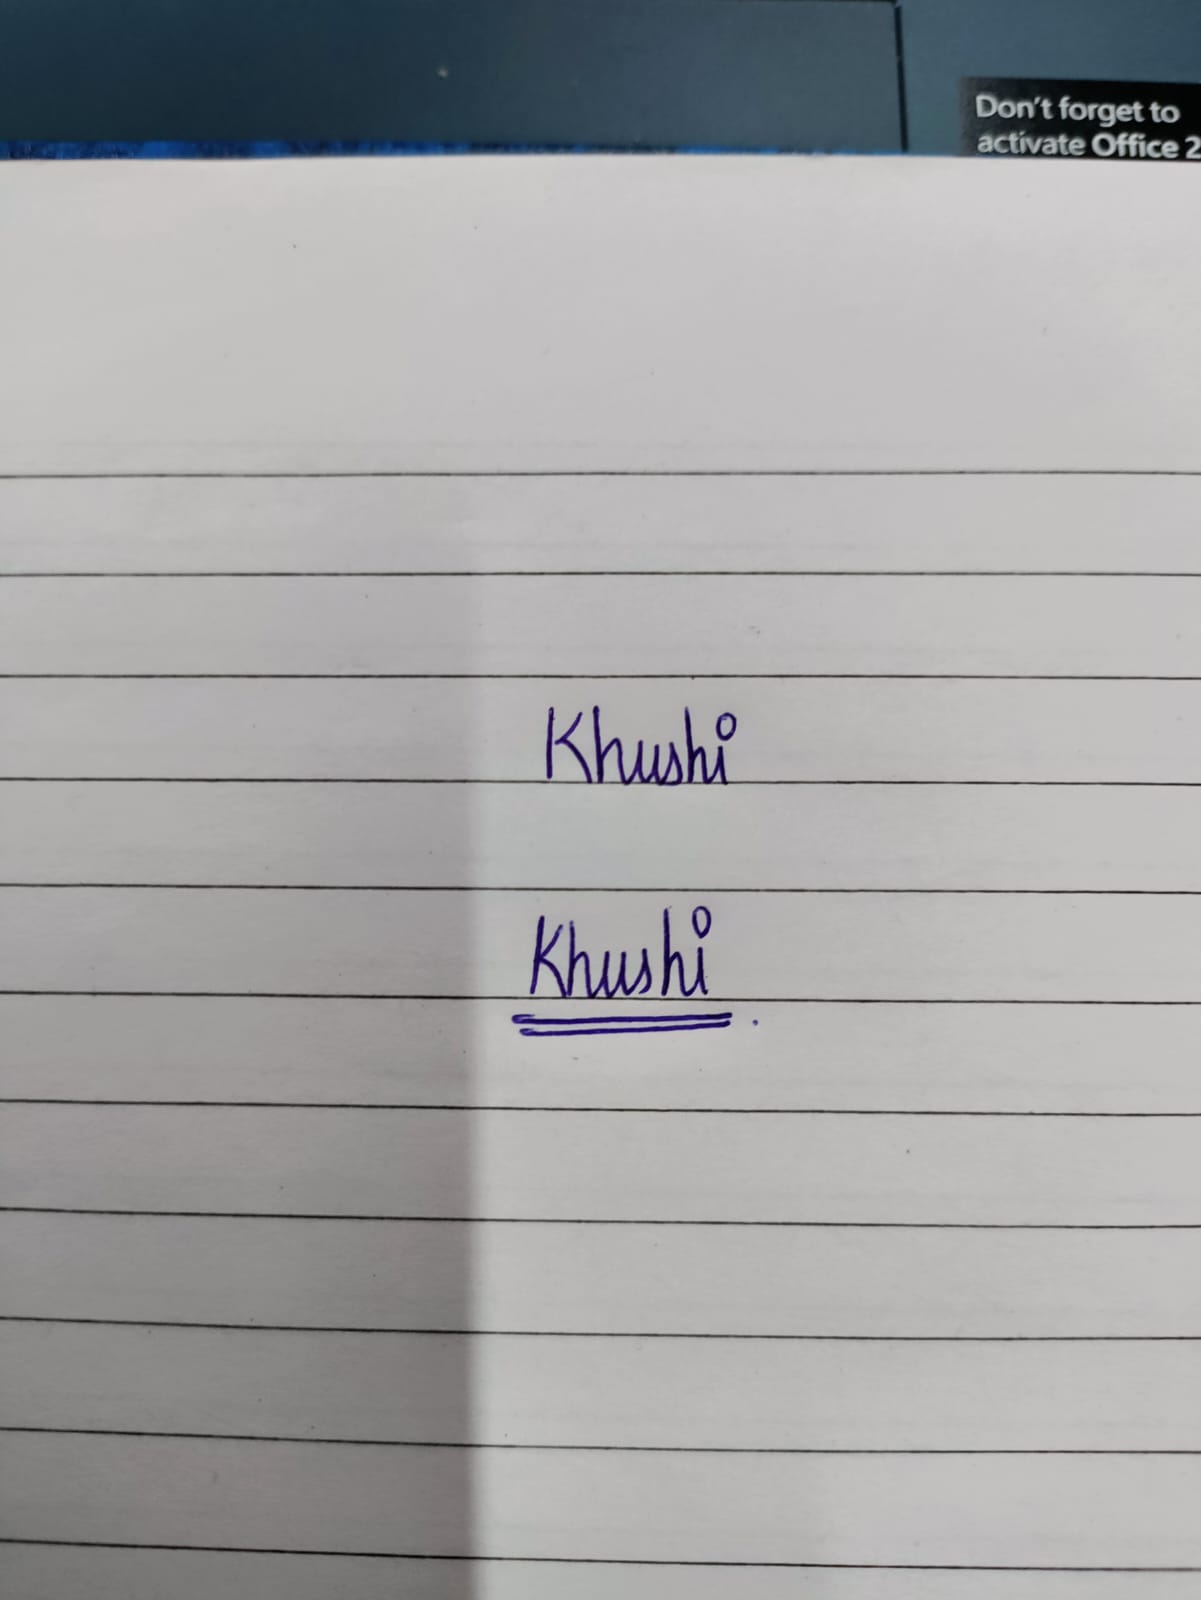 Don't forget to
activate Office 2
Khushi
Khushi